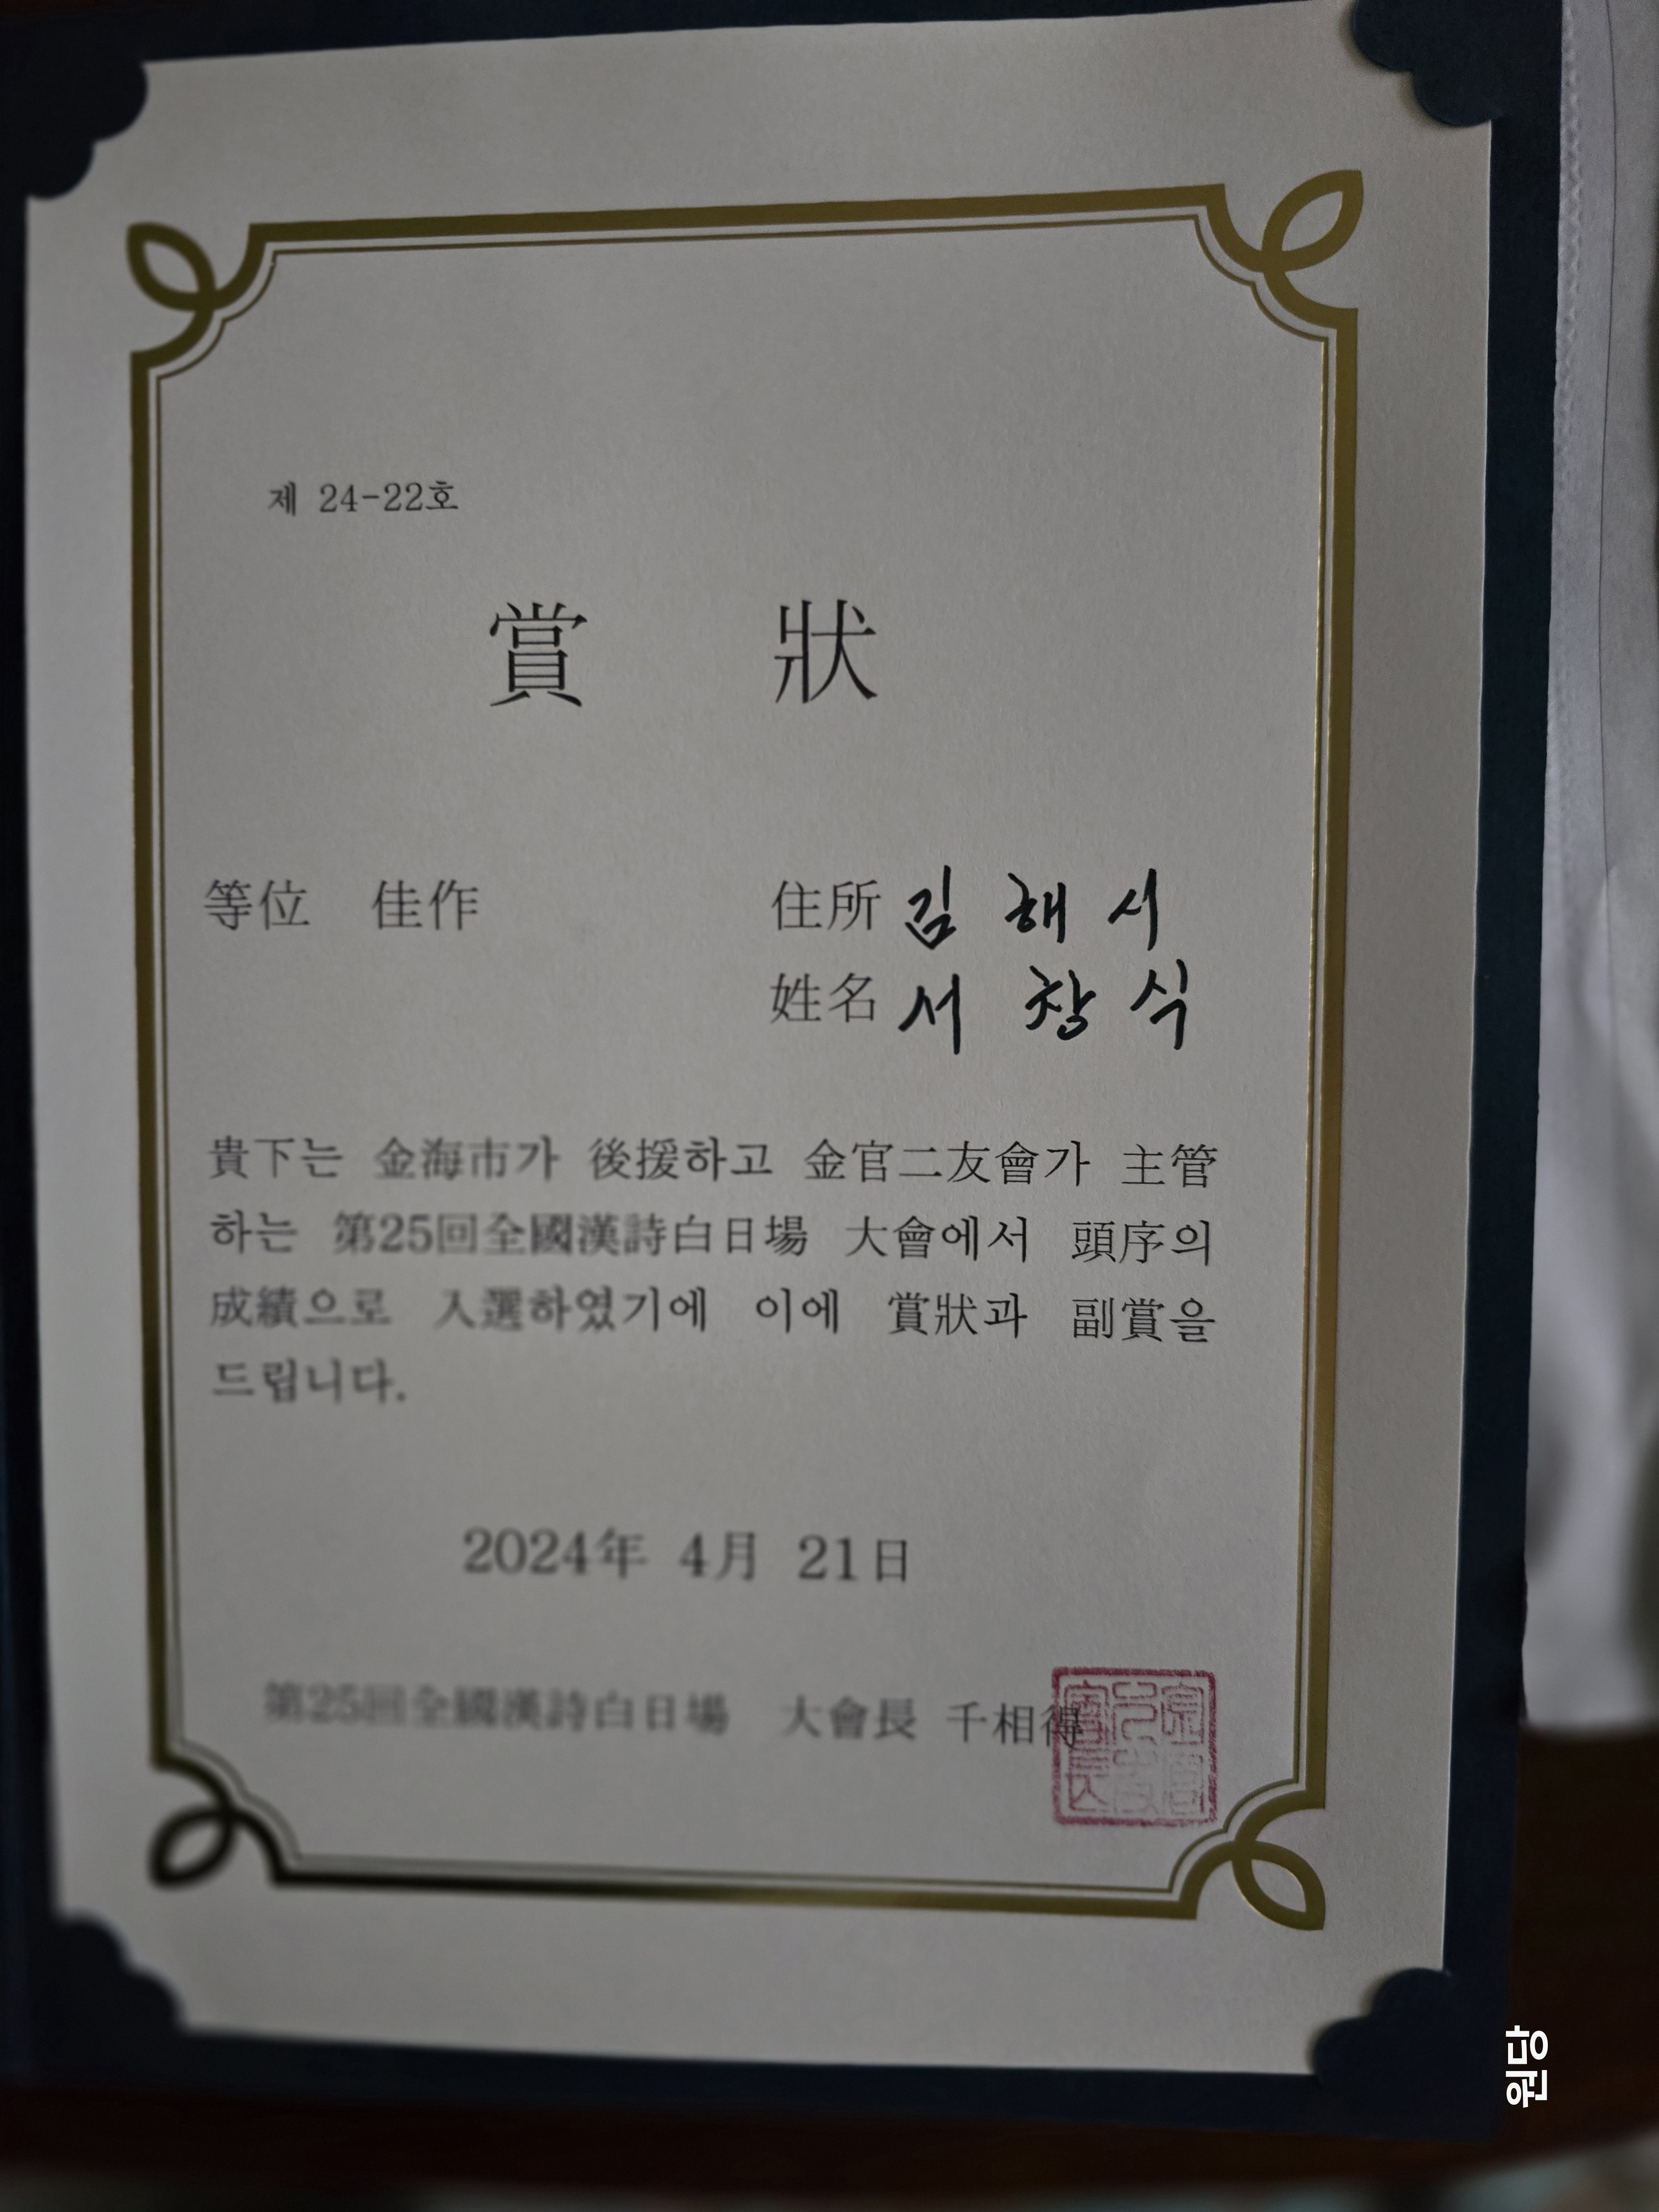 제 24-22호
賞 狀
等位 佳作 住所 김해시
姓名 서창식
貴下는 金海市가 後援하고 金官二友會가 主管
하는 第25回全國漢詩白日場 大會에서 頭序의
成績으로 入選하였기에 이에 賞狀과 副賞을
드립니다.
2024年 4月 21日
第25回全國漢詩白日場 大會長 千相得
원당